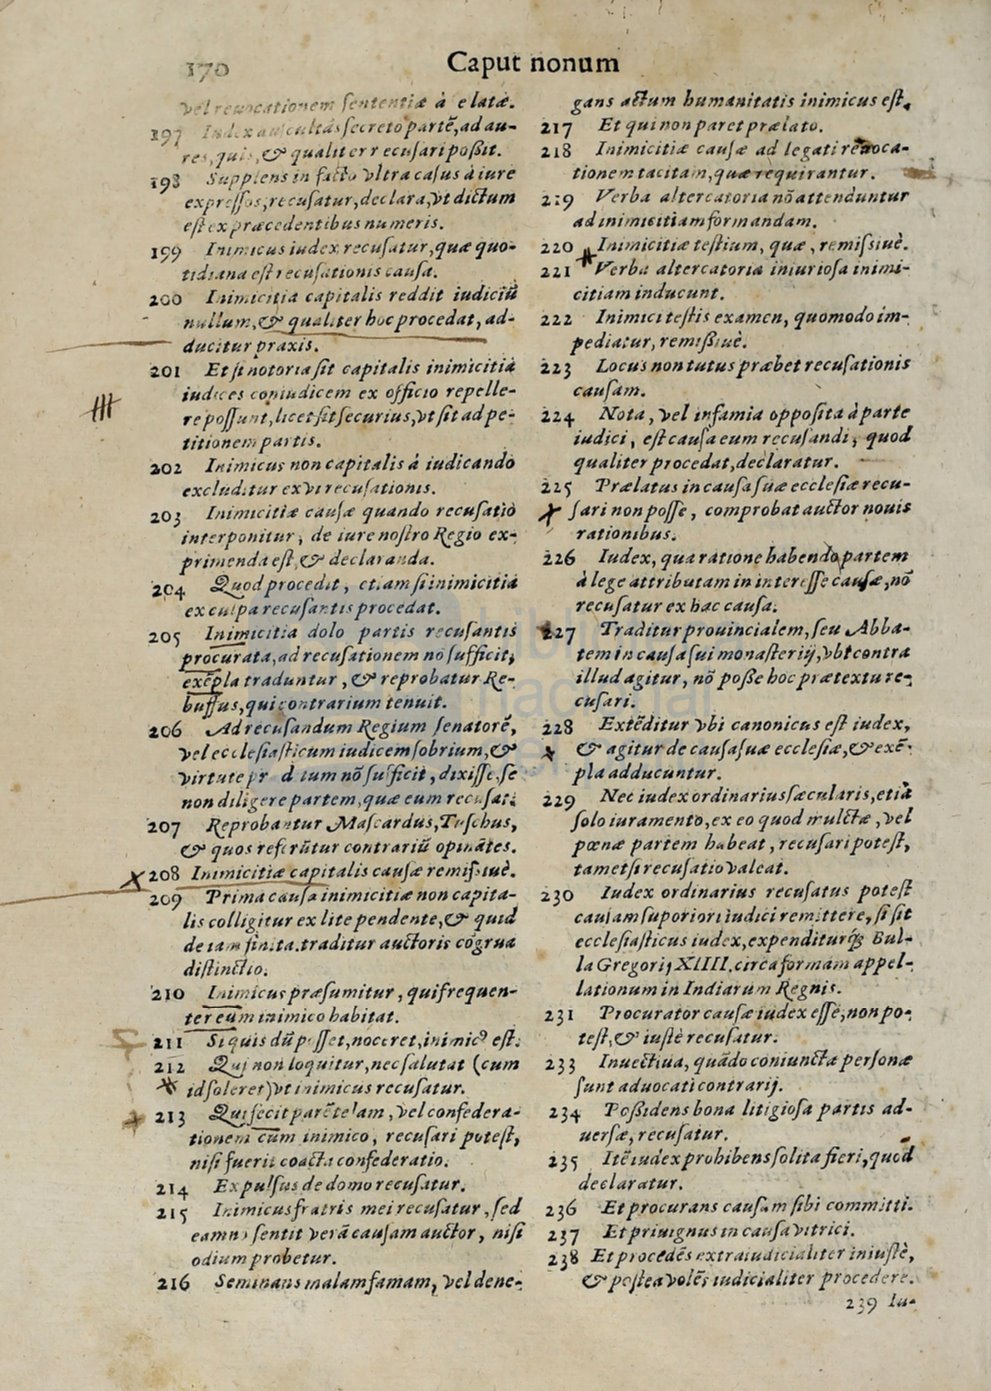 170
Caput nonum
vel reuocationem sententiæ à se latæ.
197 Iudex auscultãs secreto partẽ, ad au-
res, quis, & qualiter recusari poßit.
198 Supplens in facto vltra casus à iure
expressos, recusatur, declara, vt dictum
est ex præcedentibus numeris.
199 Inimicus iudex recusatur, quæ quo-
tidiana est recusationis causa.
200 Inimicitia capitalis reddit iudiciũ
nullum, & qualiter hoc procedat, ad-
ducitur praxis.
201 Et si notoria sit capitalis inimicitia
iudices coniudicem ex officio repelle-
re possunt, licet sit securius, vt sit ad pe-
titionem partis.
202 Inimicus non capitalis à iudicando
excluditur ex vi recusationis.
203 Inimicitiæ causæ quando recusatio
interponitur, de iure nostro Regio ex-
primenda est, & declaranda.
204 Quod procedit, etiam si inimicitia
ex culpa recusantis procedat.
205 Inimicitia dolo partis recusantis
procurata, ad recusationem nõ sufficit,
exẽpla traduntur, & reprobatur Re-
buffus, qui contrarium tenuit.
206 Ad recusandum Regium senatorẽ,
vel ecclesiasticum iudicem sobrium, &
virtute nõ sufficit, dixisse, se
non diligere partem, quæ eum recusat.
207 Reprobantur Mascardus, Tuschus,
& quos referũtur contrariũ opinãtes.
208 Inimicitiæ capitalis causæ remißiuè.
209 Prima causa inimicitiæ non capita-
lis colligitur ex lite pendente, & quid
de iam finita. traditur auctoris cõgrua
distinctio.
210 Inimicus præsumitur, qui frequen-
ter cum inimico habitat.
211 Si quis dũ posset, noceret, inimicꝰ est.
212 Qui non loquitur, nec salutat (cum
id soleret) vt inimicus recusatur.
213 Qui fecit parẽtelam, vel confedera-
tionem cum inimico, recusari potest,
nisi fuerit coacta confederatio.
214 Expulsus de domo recusatur.
215 Inimicus fratris mei recusatur, sed
eamnõ sentit verã causam auctor, nisi
odium probetur.
216 Seminans malam famam, vel dene-
gans actum humanitatis inimicus est.
217 Et qui non paret prælato.
218 Inimicitiæ causæ ad legati reuoca-
tionem tacitam, quæ requirantur.
219 Verba altercatoria nõ attenduntur
ad inimicitiam formandam.
220 Inimicitiæ testium, quæ, remissiuè.
221 Verba altercatoria iniuriosa inimi-
citiam inducunt.
222 Inimici testis examen, quomodo im-
pediatur, remißiuè.
223 Locus non tutus præbet recusationis
causam.
224 Nota, vel infamia opposita à parte
iudici, est causa eum recusandi, quod
qualiter procedat, declaratur.
225 Prælatus in causa suæ ecclesiæ recu-
sari non posse, comprobat auctor nouis
rationibus.
226 Iudex, qua ratione habendo partem
à lege attributam in interesse causæ, nõ
recusatur ex hac causa.
227 Traditur prouincialem, seu Abba-
tem in causa sui monasterij, vbi contra
illud agitur, nõ poße hoc prætextu re-
cusari.
228 Extẽditur vbi canonicus est iudex,
& agitur de causa suæ ecclesiæ, & exẽ-
pla adducuntur.
229 Nec iudex ordinarius sæcularis, etiã
solo iuramento, ex eo quod mulctæ, vel
pœnæ partem habeat, recusari potest,
tametsi recusatio valeat.
230 Iudex ordinarius recusatus potest
causam suporiori iudici remittere, si sit
ecclesiasticus iudex, expenditurq́; Bul-
la Gregorij XIIII. circa formam appel-
lationum in Indiarum Regnis.
231 Procurator causæ iudex esse, non po-
test, & iustè recusatur.
233 Inuectiua, quãdo coniuncta personæ
sunt aduocati contrarij.
234 Poßidens bona litigiosa partis ad-
uersæ, recusatur.
235 Itẽ iudex prohibens solita fieri, quod
declaratur.
236 Et procurans causam sibi committi.
237 Et priuignus in causa vitrici.
238 Et procedẽs extraiudicialiter iniustè,
& postea volẽs iudicialiter procedere.
239 Iu-